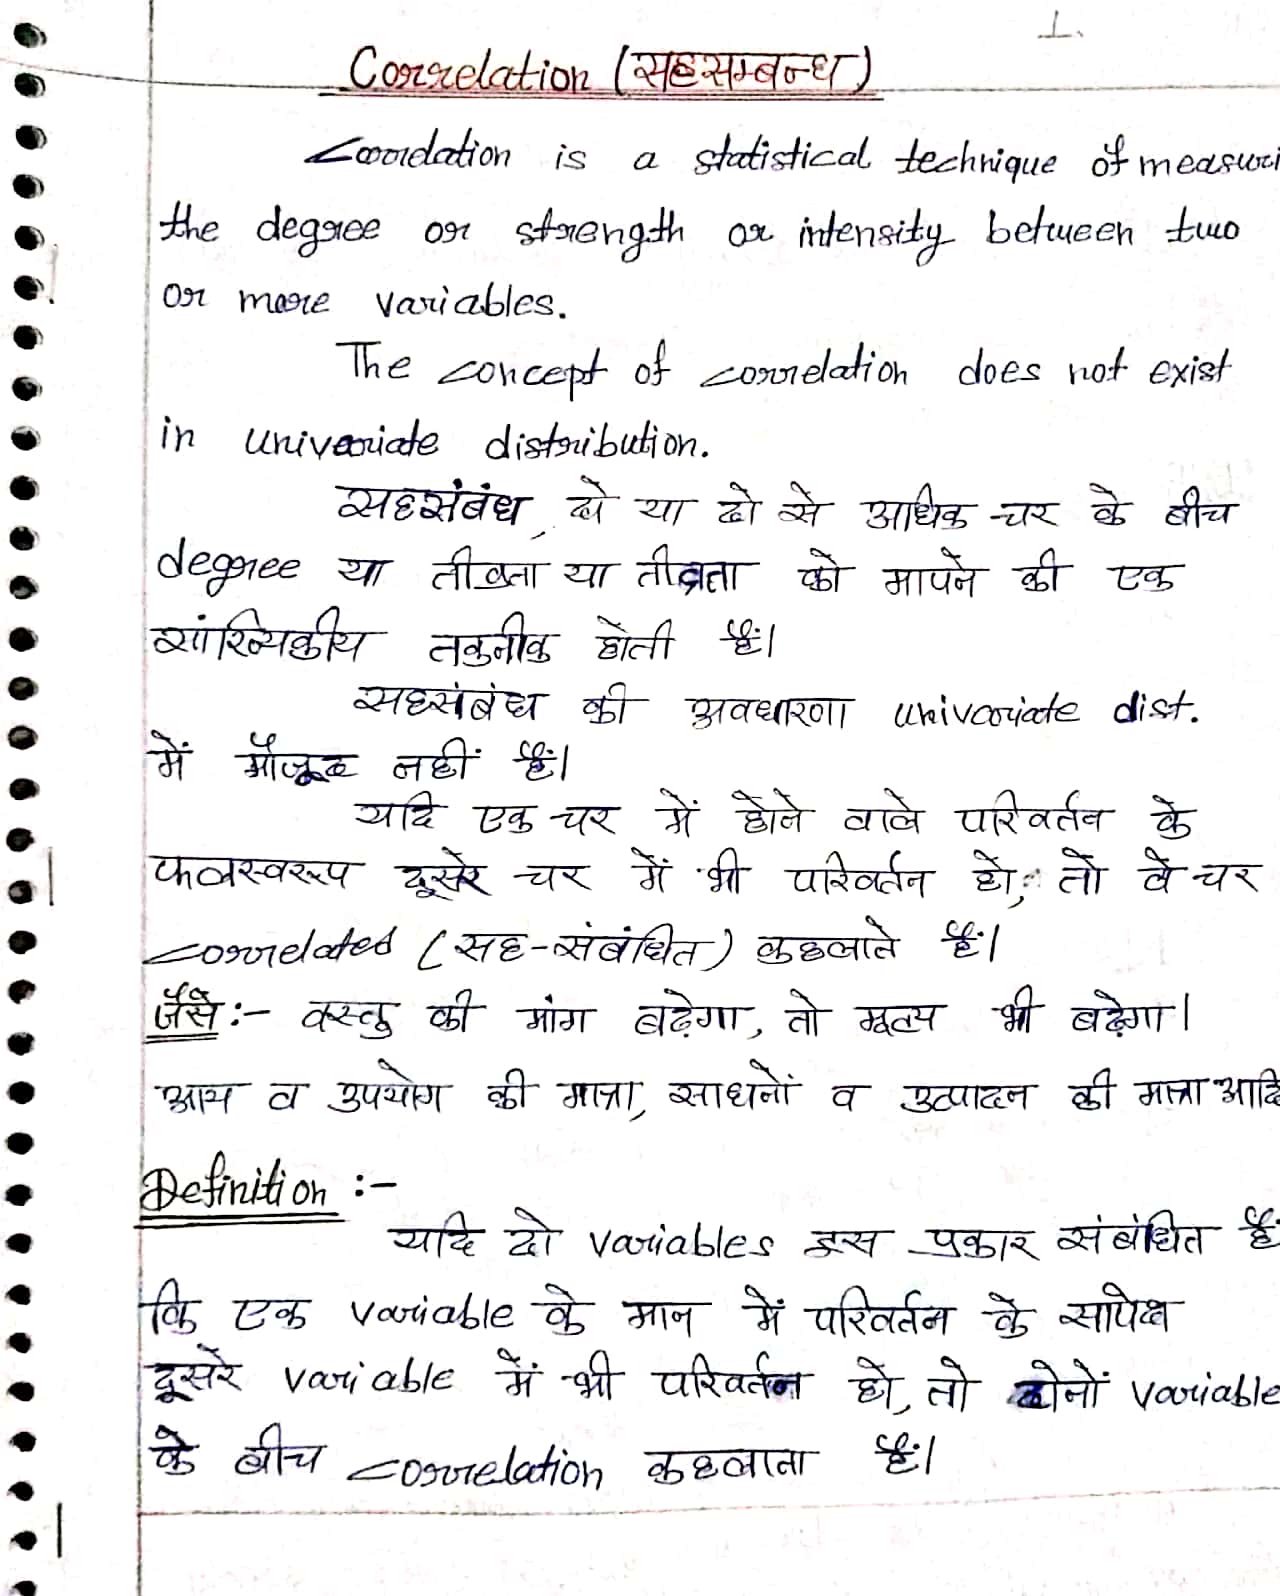 1.
Correlation (सहसम्बन्ध)
Correlation is a statistical technique of measuri
the degree or strength or intensity between two
or more variables.
The concept of correlation does not exist
in univariate distribution.
सहसंबंध, दो या दो से अधिक चर के बीच
degree या तीव्रता या तीव्रता को मापने की एक
सांख्यिकीय तकनीक होती हैं।
सहसंबंध की अवधारणा univariate dist.
में मौजूद नहीं हैं।
यदि एक चर में होने वाले परिवर्तन के
फलस्वरूप दूसरे चर में भी परिवर्तन हो, तो वे चर
correlated (सह-संबंधित) कहलाते हैं।
जैसे :- वस्तु की मांग बढ़ेगा, तो मूल्य भी बढ़ेगा।
आय व उपयोग की मात्रा, साधनों व उत्पादन की मात्रा आदि
Definition :-
यदि दो variables इस प्रकार संबंधित हैं
कि एक variable के मान में परिवर्तन के सापेक्ष
दूसरे variable में भी परिवर्तन हो, तो दोनों variable
के बीच correlation कहलाता हैं।